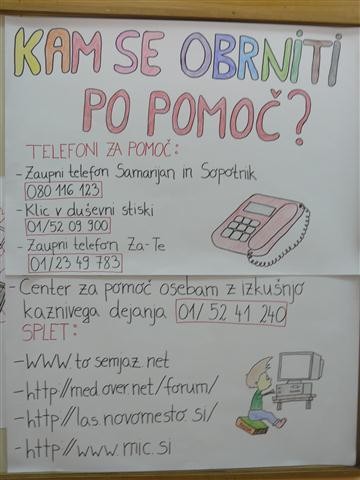 KAM SE OBRNiTi
PO POMOČ?
TELEFONI ZA POMOČ:
-Zaupni telefon Samarijan in Sopotnik
080 116 123
-Klic v duševni stiski
01/52 09 900
-Zaupni telefon Za-Te
01/23 49 783
-Center za pomoč osebam z izkušnjo
kaznivega dejanja 01/ 52 41 240
SPLET:
-WWW.to semjaz.net
-http//med.over.net/forum/
-http//las.novomesto.si/
-http//www.mic.si